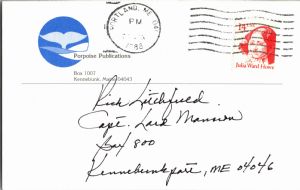 Porpoise Publications
Box 1007
Kennebunk, Maine 04043
PORTLAND, ME 04
PM
1988
14
Julia Ward Howe
Rick Litchfield
Capt. Lord Mansion
Box 800
Kennebunkport, ME 04046